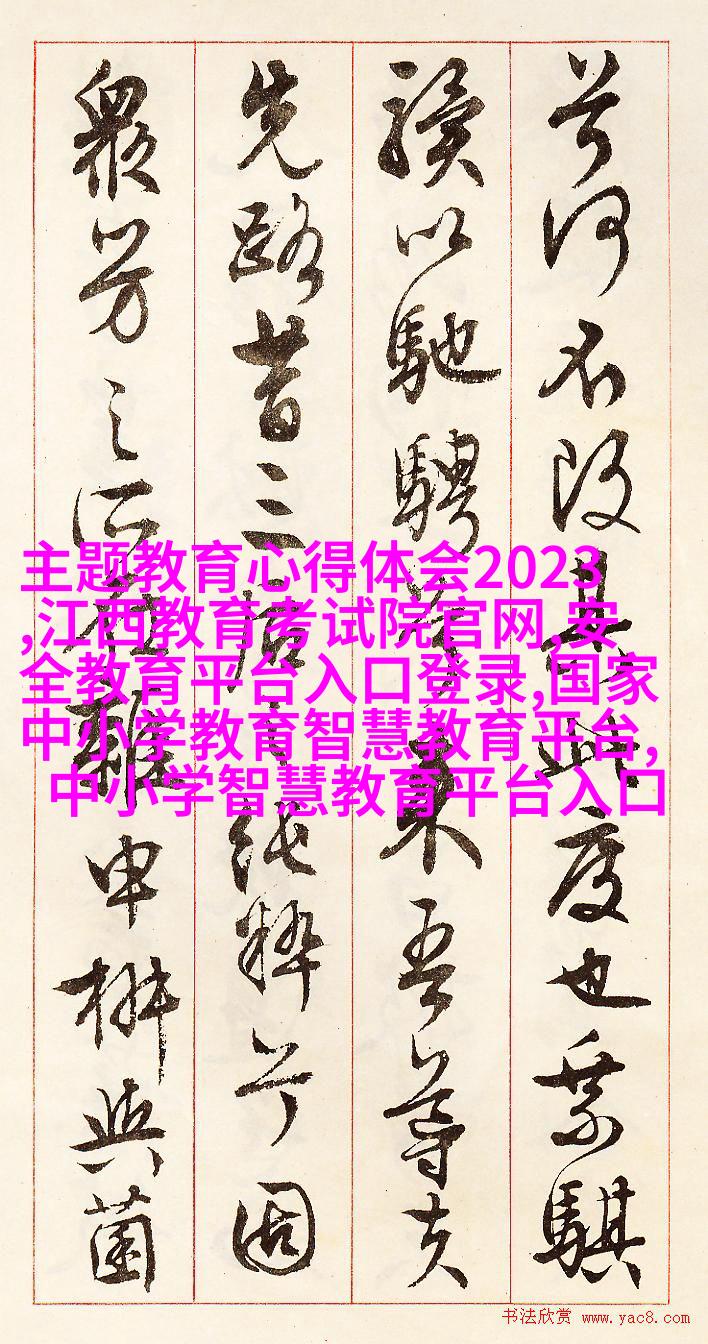 兮何不改其此度也乘騏
驥以馳騁兮來吾導夫
先路昔三后之純粹兮固
眾芳之所在雜申椒與菌
主题教育心得体会2023
,江西教育考试院官网,安
全教育平台入口登录,国家
中小学教育智慧教育平台,
中小学智慧教育平台入口
书法欣赏 www.yac8.com